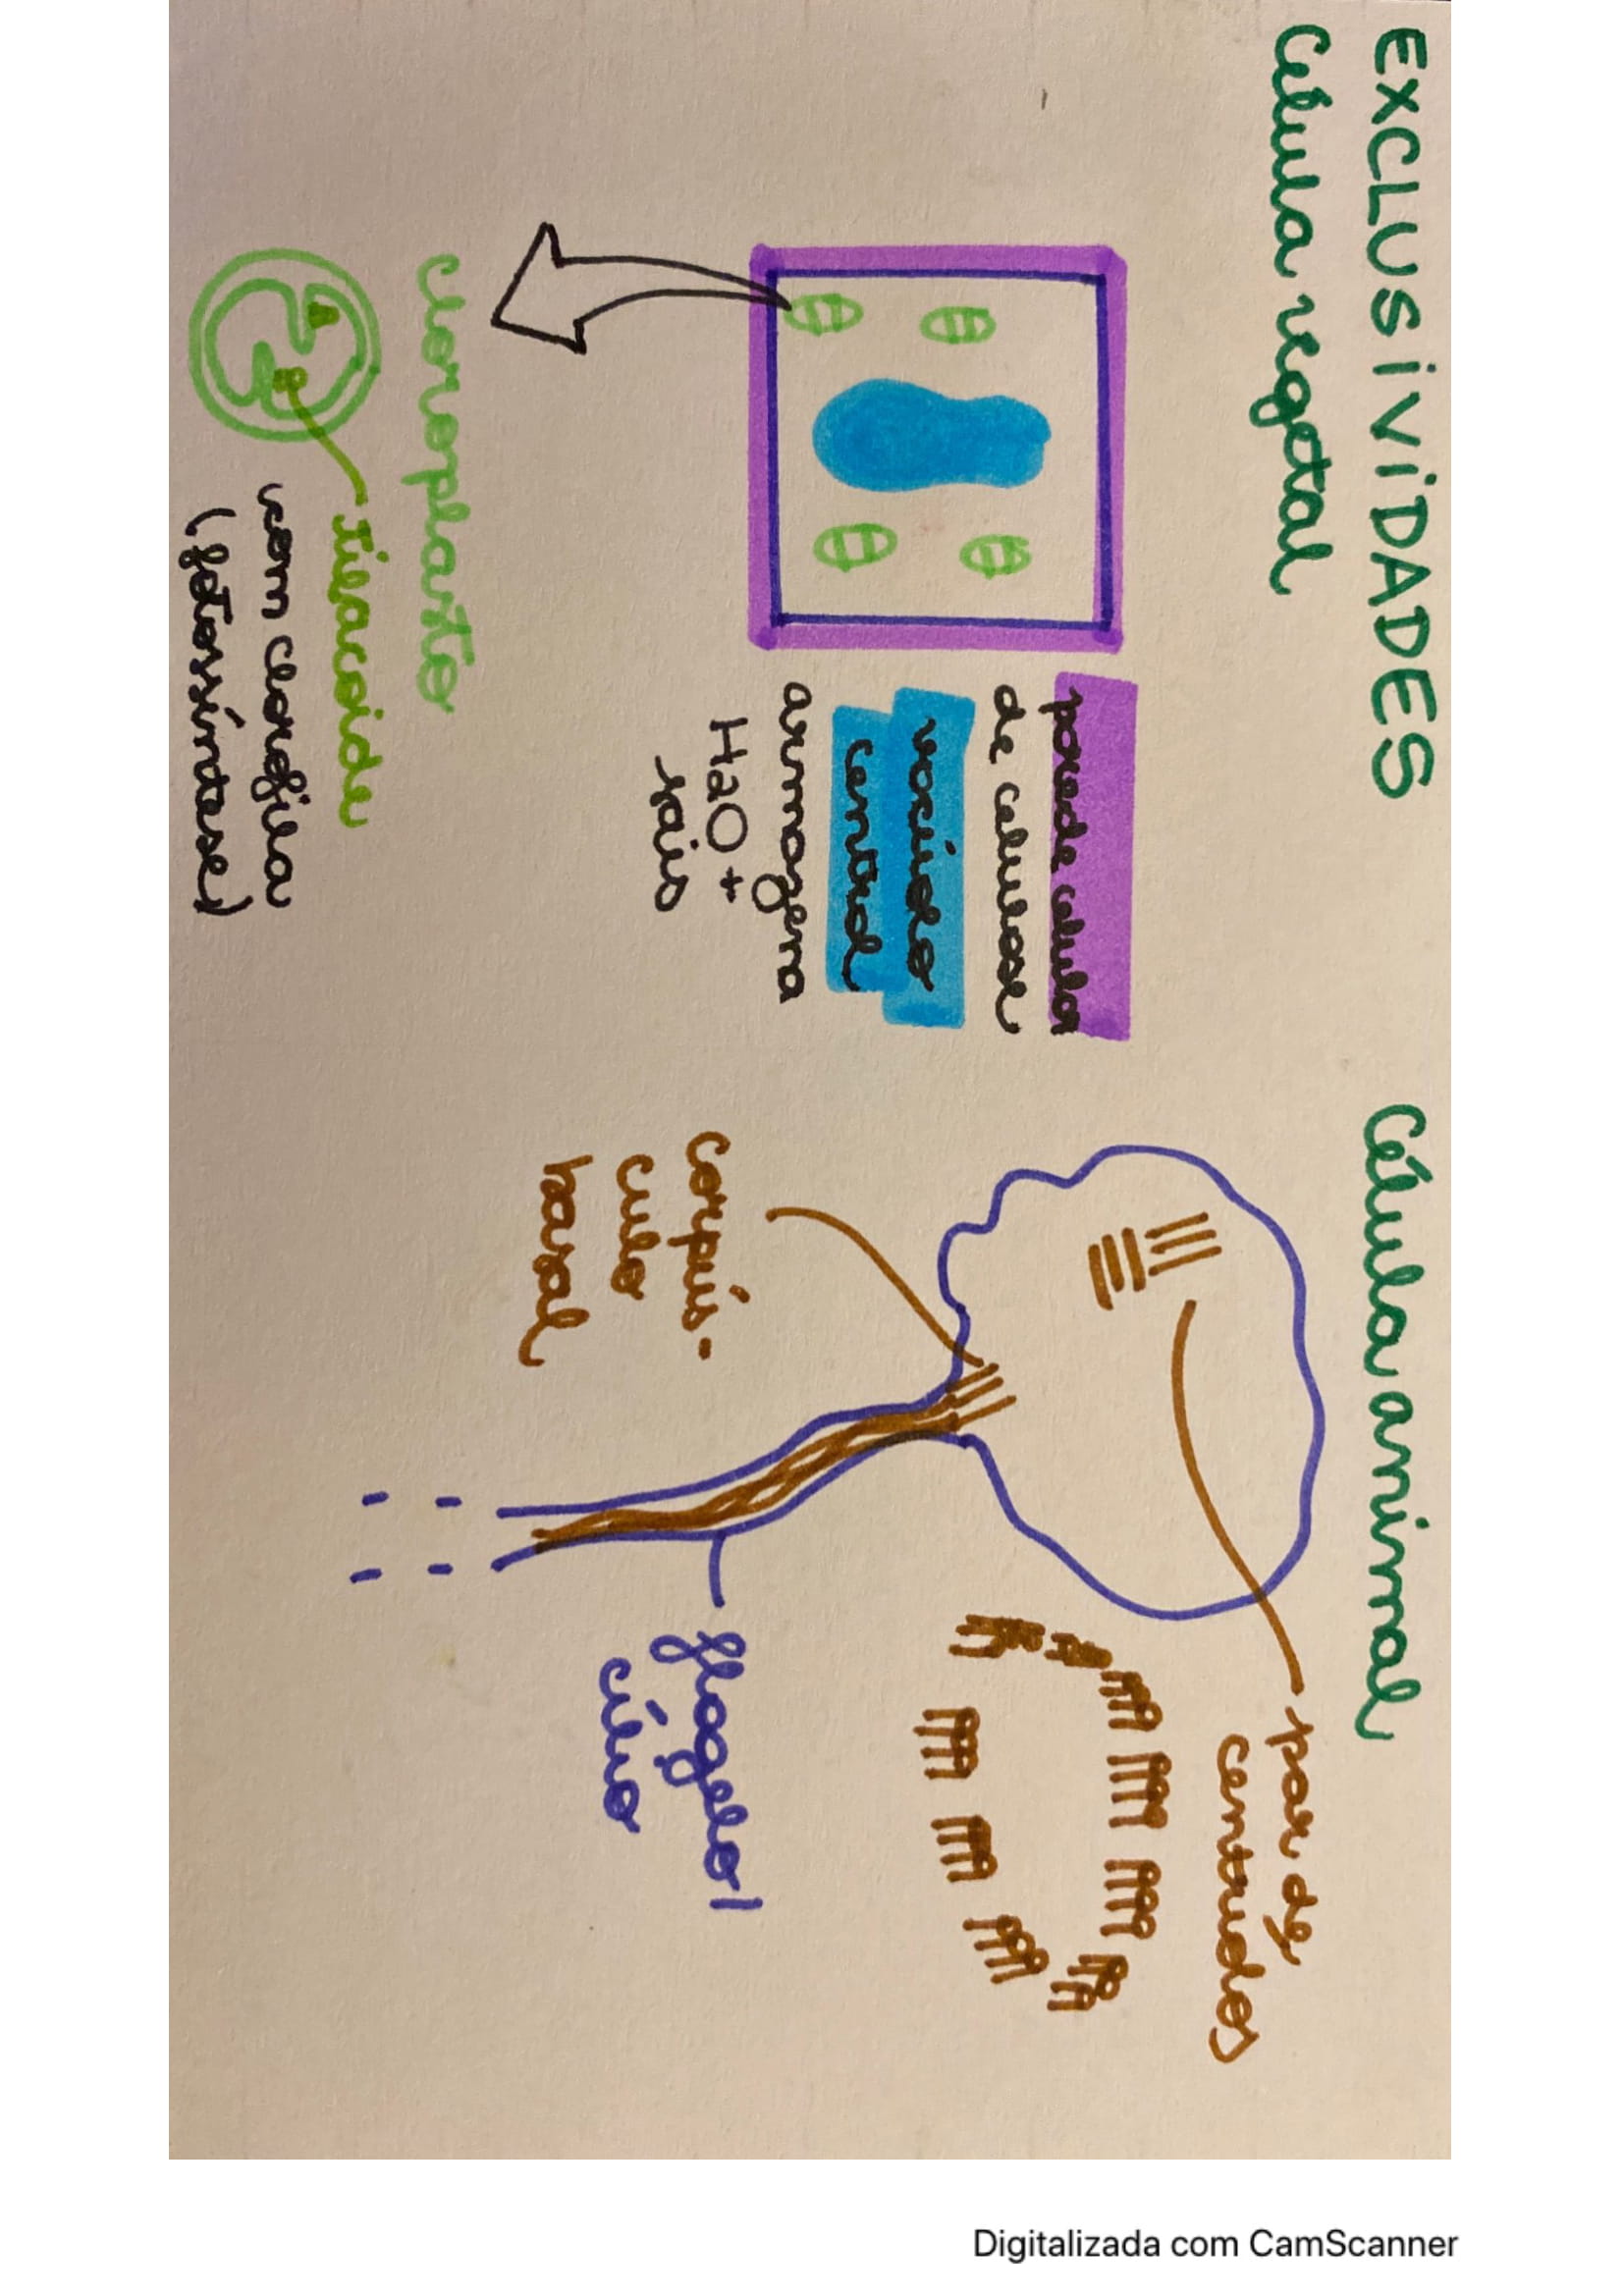 EXCLUSIVIDADES
Célula vegetal
parede celular
de celulose
vacúolo
central
armazena
H2O +
sais
cloroplasto
tilacoide
com clorofila
(fotossíntese)
Célula animal
par de
centríolos
corpús-
culo
basal
flagelo/
cílio
Digitalizada com CamScanner